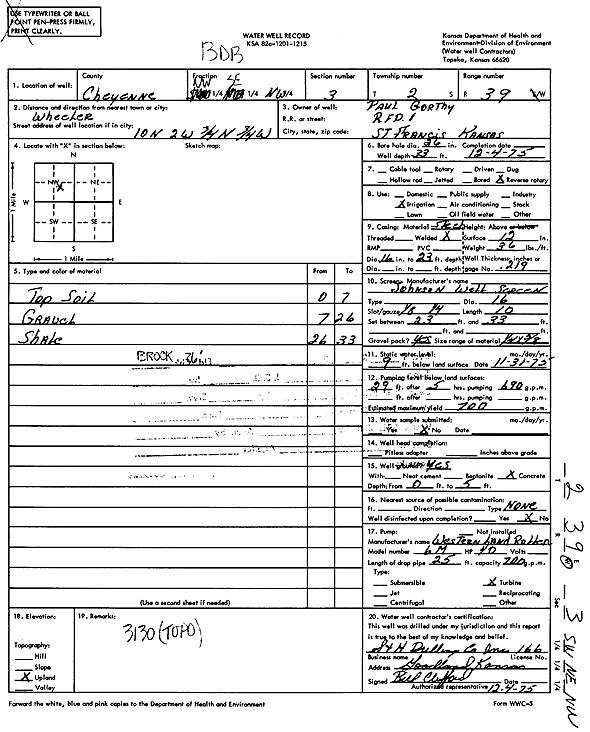 USE TYPEWRITER OR BALL
POINT PEN-PRESS FIRMLY,
PRINT CLEARLY.
WATER WELL RECORD
KSA 82a-1201-1215
BDB
Kansas Department of Health and
Environment-Division of Environment
(Water well Contractors)
Topeka, Kansas 66620
1. Location of well:
County
Cheyenne
Fraction
NW SE
1/4 1/4 NW 1/4
Section number
3
Township number
T 2 S
Range number
R 39 E/W
2. Distance and direction from nearest town or city:
Wheeler
Street address of well location if in city:
10 N 2W 3/4 N 1/4 W
3. Owner of well: PAUL GORTHY
R.R. or street: RFD. 1
City, state, zip code: ST FRANCIS KANSAS
4. Locate with "X" in section below:
Sketch map:
N
NW X NE
W E
SW SE
S
1 Mile
1 Mile
6. Bore hole dia. 36 in. Completion date
Well depth 33 ft. 12-4-75
7. Cable tool Rotary Driven Dug
Hollow rod Jetted Bored X Reverse rotary
8. Use: Domestic Public supply Industry
X Irrigation Air conditioning Stock
Lawn Oil field water Other
9. Casing: Material Steel Height: Above or below
Threaded Welded X Surface 12 in.
RMP PVC Weight 36 lbs./ft.
Dia. 16 in. to 23 ft. depth Wall Thickness: inches or
Dia. in. to ft. depth gage No. .219
5. Type and color of material
From To
Top Soil 0 7
Gravel 7 26
Shale 26 33
10. Screen: Manufacturer's name
Johnson Well Screen
Type Dia. 16
Slot/gauze 1/8 1/4 Length 10
Set between 23 ft. and 33 ft.
ft. and ft.
Gravel pack? yes Size range of material
11. Static water level: mo./day/yr.
9 ft. below land surface Date 11-31-75
12. Pumping level below land surfaces:
29 ft. after 5 hrs. pumping 690 g.p.m.
ft. after hrs. pumping g.p.m.
Estimated maximum yield 700 g.p.m.
13. Water sample submitted: mo./day/yr.
Yes X No Date
14. Well head completion:
Pitless adapter Inches above grade
15. Well grouted? yes
With: Neat cement Bentonite X Concrete
Depth: From 0 ft. to 5 ft.
16. Nearest source of possible contamination:
ft. Direction Type NONE
Well disinfected upon completion? Yes X No
17. Pump: Not installed
Manufacturer's name Western Land Roller
Model number 6M HP 40 Volts
Length of drop pipe 25 ft. capacity 700 g.p.m.
Type:
Submersible X Turbine
Jet Reciprocating
Centrifugal Other
(Use a second sheet if needed)
18. Elevation:
Topography:
Hill
Slope
X Upland
Valley
19. Remarks:
3130 (TOPO)
20. Water well contractor's certification:
This well was drilled under my jurisdiction and this report
is true to the best of my knowledge and belief.
Drilling Co Inc 166
Business name License No.
Address Goodland, Kansas
Signed Bill Date 12-4-75
Authorized representative
T 2 R 39 E W Sec 3 SW NE NW
1/4 1/4 1/4
Forward the white, blue and pink copies to the Department of Health and Environment
Form WWC-5